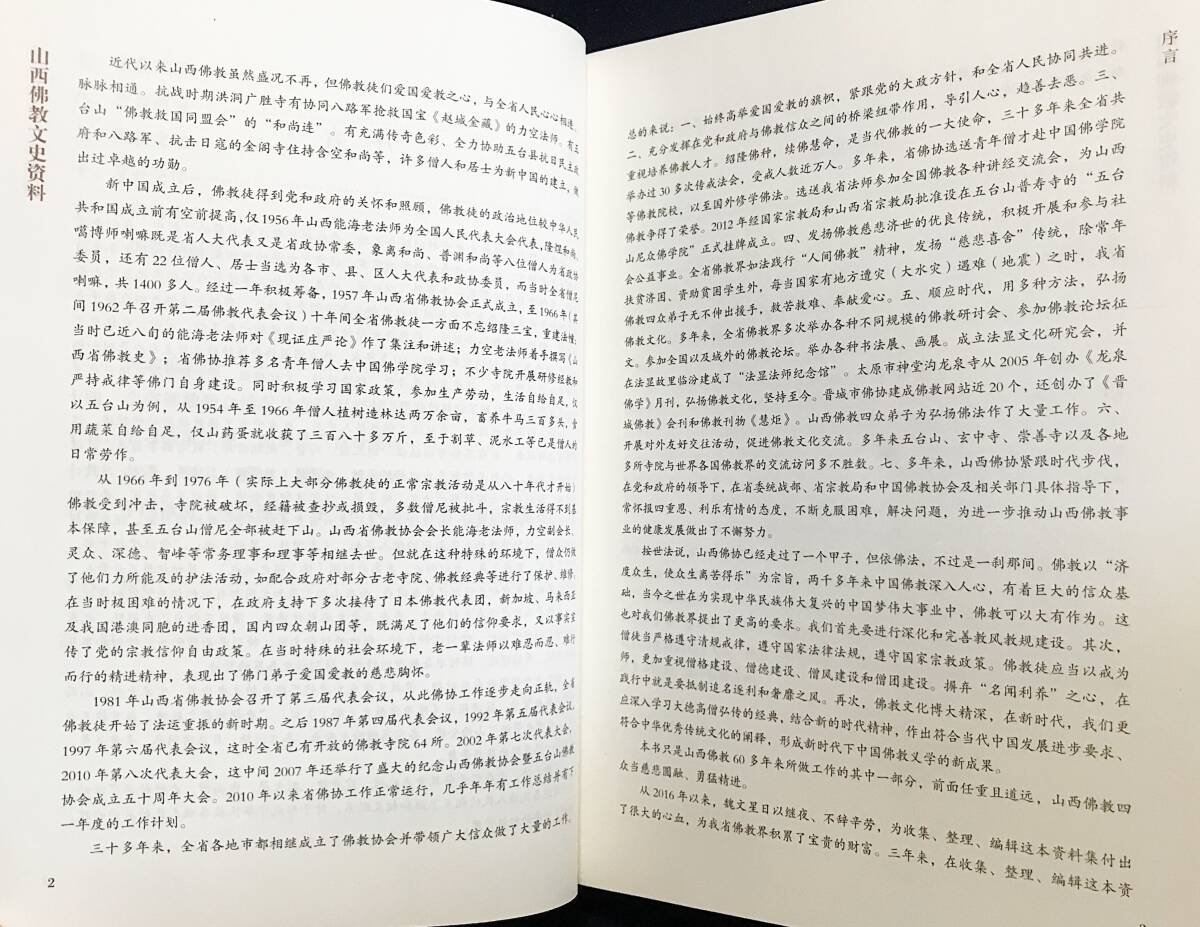 山西佛教文史资料
近代以来山西佛教虽然盛况不再，但佛教徒们爱国爱教之心，与全省人民心心相连、
脉脉相通。抗战时期洪洞广胜寺有协同八路军抢救国宝《赵城金藏》的力空法师。有五
台山“佛教救国同盟会”的“和尚连”。有充满传奇色彩、全力协助五台县抗日民主政
府和八路军、抗击日寇的金阁寺住持含空和尚等，许多僧人和居士为新中国的建立，做
出过卓越的功勋。
新中国成立后，佛教徒得到党和政府的关怀和照顾，佛教徒的政治地位较中华人民
共和国成立前有空前提高，仅1956年山西能海老法师为全国人民代表大会代表，隆煜和尚、
噶博师喇嘛既是省人大代表又是省政协常委，象离和尚、普渊和尚等八位僧人为省政协
委员，还有22位僧人、居士当选为各市、县、区人大代表和政协委员，而当时全省僧尼
喇嘛，共1400多人。经过一年积极筹备，1957年山西省佛教协会正式成立，至1966年（其
间1962年召开第二届佛教代表会议）十年间全省佛教徒一方面不忘绍隆三宝，重建法幢；
当时已近八旬的能海老法师对《现证庄严论》作了集注和讲述；力空老法师着手撰写《山
西省佛教史》；省佛协推荐多名青年僧人去中国佛学院学习；不少寺院开展研修经教和
严持戒律等佛门自身建设。同时积极学习国家政策，参加生产劳动，生活自给自足，仅
以五台山为例，从1954年至1966年僧人植树造林达两万余亩，畜养牛马三百多头，食
用蔬菜自给自足，仅山药蛋就收获了三百八十多万斤，至于割草、泥水工等已是僧人的
日常劳作。
从1966年到1976年（实际上大部分佛教徒的正常宗教活动是从八十年代才开始）
佛教受到冲击，寺院被破坏，经籍被查抄或损毁，多数僧尼被批斗，宗教生活得不到基
本保障，甚至五台山僧尼全部被赶下山。山西省佛教协会会长能海老法师，力空副会长、
灵众、深德、智峰等常务理事和理事等相继去世。但就在这种特殊的环境下，僧众仍做
了他们力所能及的护法活动，如配合政府对部分古老寺院、佛教经典等进行了保护、维修。
在当时极困难的情况下，在政府支持下多次接待了日本佛教代表团，新加坡、马来西亚
及我国港澳同胞的进香团，国内四众朝山团等，既满足了他们的信仰要求，又以事实宣
传了党的宗教信仰自由政策。在当时特殊的社会环境下，老一辈法师以难忍而忍、难行
而行的精进精神，表现出了佛门弟子爱国爱教的慈悲胸怀。
1981年山西省佛教协会召开了第三届代表会议，从此佛协工作逐步走向正轨，全省
佛教徒开始了法运重振的新时期。之后1987年第四届代表会议，1992年第五届代表会议，
1997年第六届代表会议，这时全省已有开放的佛教寺院64所。2002年第七次代表大会，
2010年第八次代表大会，这中间2007年还举行了盛大的纪念山西佛教协会暨五台山佛教
协会成立五十周年大会。2010年以来省佛协工作正常运行，几乎年年有工作总结并有下
一年度的工作计划。
三十多年来，全省各地市都相继成立了佛教协会并带领广大信众做了大量的工作。
2
序言
总的来说：一、始终高举爱国爱教的旗帜，紧跟党的大政方针，和全省人民协同共进。
二、充分发挥在党和政府与佛教信众之间的桥梁纽带作用，导引人心，趋善去恶。三、
重视培养佛教人才。绍隆佛种，续佛慧命，是当代佛教的一大使命，三十多年来全省共
举办过30多次传戒法会，受戒人数近万人。多年来，省佛协选送青年僧才赴中国佛学院
等佛教院校，以至国外修学佛法。选送我省法师参加全国佛教各种讲经交流会，为山西
佛教争得了荣誉。2012年经国家宗教局和山西省宗教局批准设在五台山普寿寺的“五台
山尼众佛学院”正式挂牌成立。四、发扬佛教慈悲济世的优良传统，积极开展和参与社
会公益事业。全省佛教界如法践行“人间佛教”精神，发扬“慈悲喜舍”传统，除常年
扶贫济困、资助贫困学生外，每当国家有地方遭灾（大水灾）遇难（地震）之时，我省
佛教四众弟子无不伸出援手，救苦救难、奉献爱心。五、顺应时代，用多种方法，弘扬
佛教文化。多年来，全省佛教界多次举办各种不同规模的佛教研讨会、参加佛教论坛征
文。参加全国以及域外的佛教论坛。举办各种书法展、画展。成立法显文化研究会，并
在法显故里临汾建成了“法显法师纪念馆”。太原市神堂沟龙泉寺从2005年创办《龙泉
佛学》月刊，弘扬佛教文化，坚持至今。晋城市佛协建成佛教网站近20个，还创办了《晋
城佛教》会刊和佛教刊物《慧炬》。山西佛教四众弟子为弘扬佛法作了大量工作。六、
开展对外友好交往活动，促进佛教文化交流。多年来五台山、玄中寺、崇善寺以及各地
多所寺院与世界各国佛教界的交流访问多不胜数。七、多年来，山西佛协紧跟时代步伐，
在党和政府的领导下，在省委统战部、省宗教局和中国佛教协会及相关部门具体指导下，
常怀报四重恩、利乐有情的态度，不断克服困难，解决问题，为进一步推动山西佛教事
业的健康发展做出了不懈努力。
按世法说，山西佛协已经走过了一个甲子，但依佛法，不过是一刹那间。佛教以“济
度众生，使众生离苦得乐”为宗旨，两千多年来中国佛教深入人心，有着巨大的信众基
础，当今之世在为实现中华民族伟大复兴的中国梦伟大事业中，佛教可以大有作为。这
也对我们佛教界提出了更高的要求。我们首先要进行深化和完善教风教规建设。其次，
僧徒当严格遵守清规戒律，遵守国家法律法规，遵守国家宗教政策。佛教徒应当以戒为
师，更加重视僧格建设、僧德建设、僧风建设和僧团建设。摒弃“名闻利养”之心，在
践行中就是要抵制追名逐利和奢靡之风。再次，佛教文化博大精深，在新时代，我们更
应深入学习大德高僧弘传的经典，结合新的时代精神，作出符合当代中国发展进步要求、
符合中华优秀传统文化的阐释，形成新时代下中国佛教义学的新成果。
本书只是山西佛教60多年来所做工作的其中一部分，前面任重且道远，山西佛教四
众当慈悲圆融、勇猛精进。
从2016年以来，魏文星日以继夜、不辞辛劳，为收集、整理、编辑这本资料集付出
了很大的心血，为我省佛教界积累了宝贵的财富。三年来，在收集、整理、编辑这本资